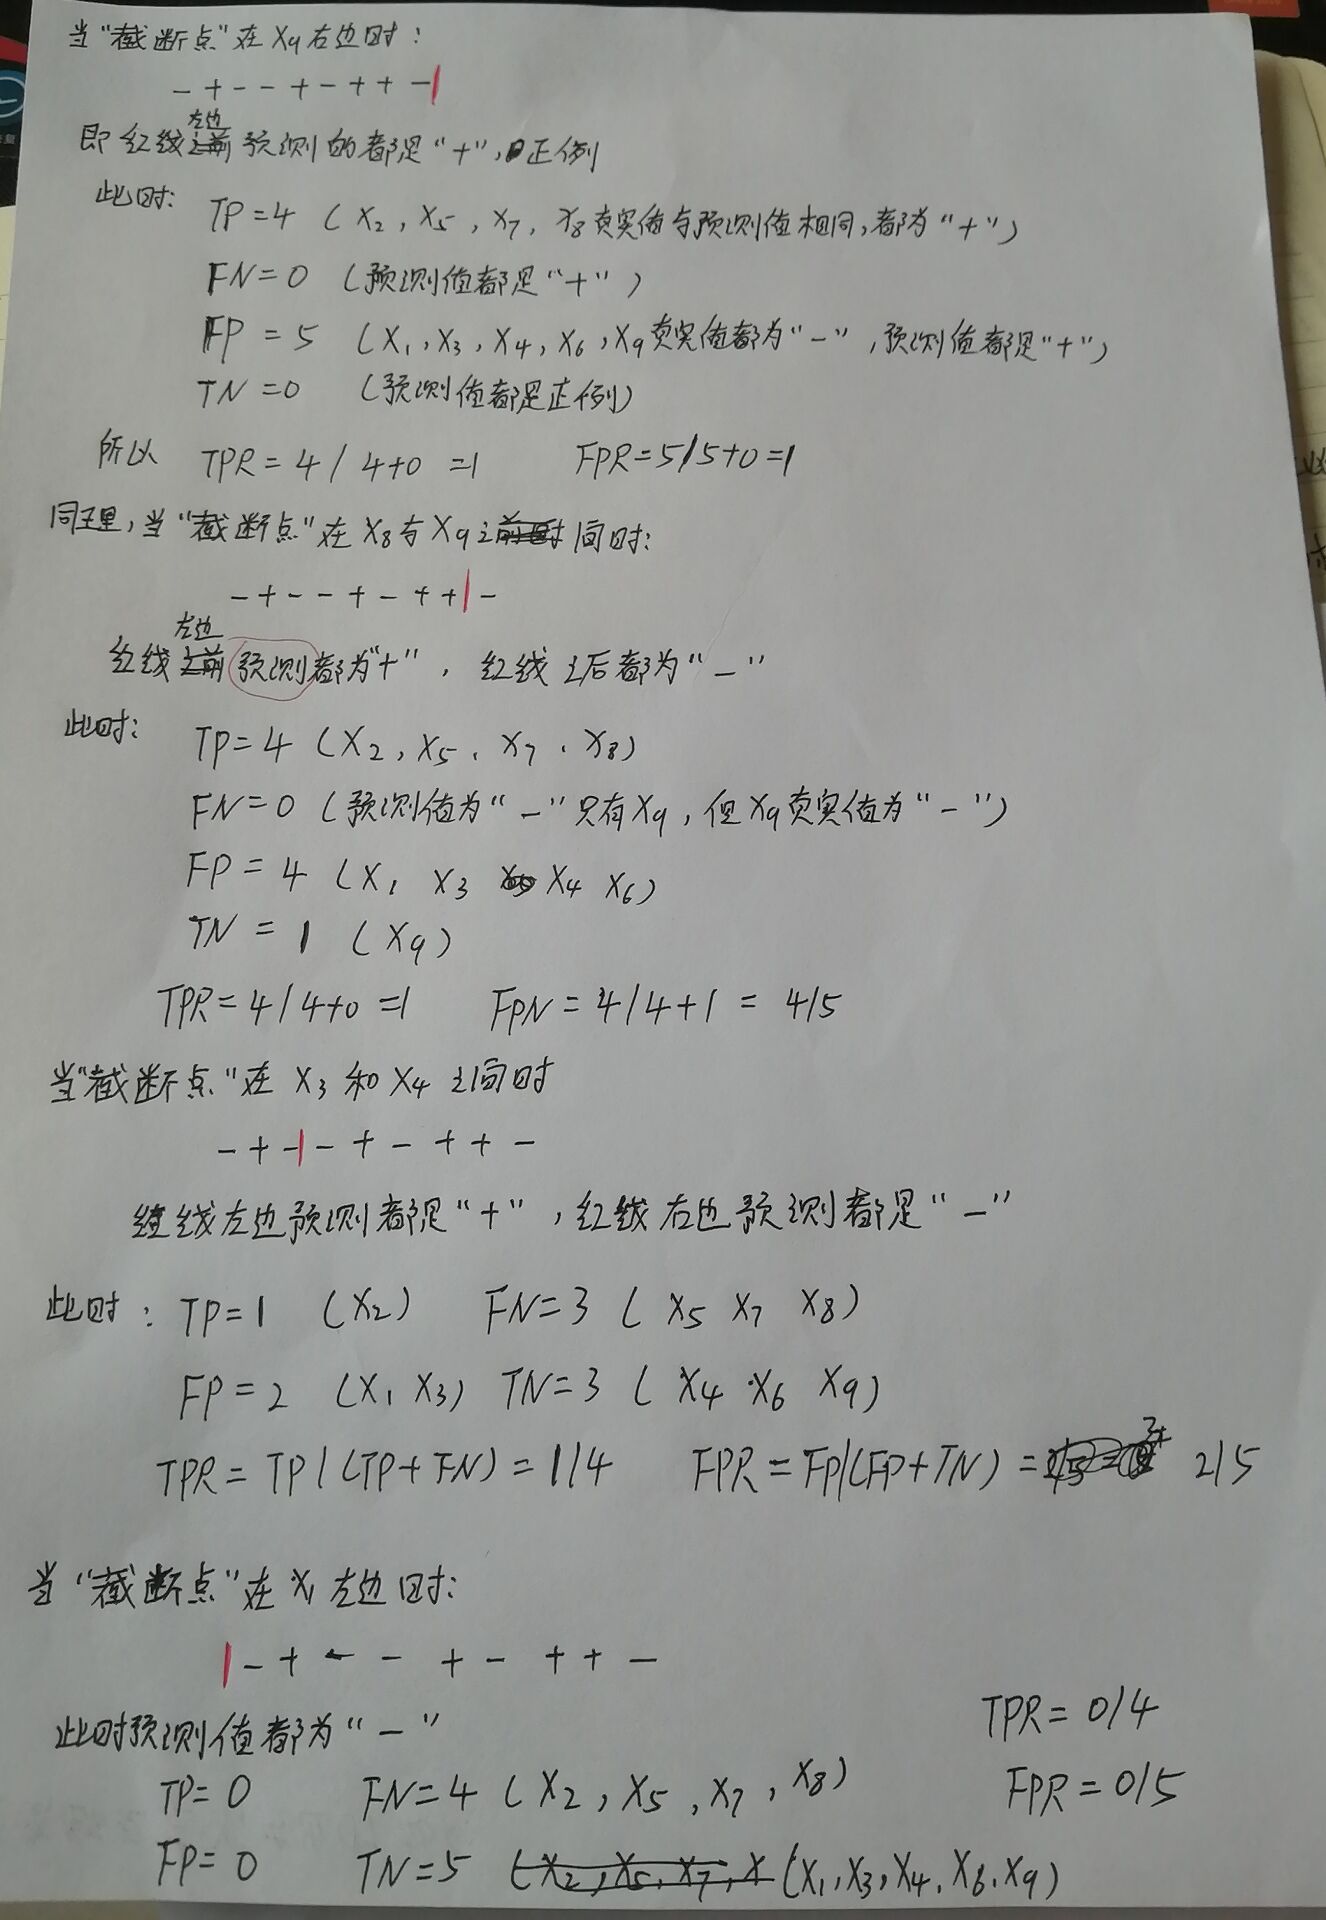 当“截断点”在X9右边时：
- + - - + - + + -|
左边
即红线之前预测的都是“+”，正例
此时：
TP=4 (X2, X5, X7, X8真实值与预测值相同,都为“+”)
FN=0 (预测值都是“+”)
FP=5 (X1,X3,X4,X6,X9真实值都为“-”,预测值都是“+”)
TN=0 (预测值都是正例)
所以 TPR=4/4+0=1 FPR=5/5+0=1
同理,当“截断点”在X8与X9之前时间时:
- + - - + - + +|-
左边
红线之前预测都为“+”，红线之后都为“-”
此时:
TP=4 (X2, X5、X7、X8)
FN=0 (预测值为“-”只有X9,但X9真实值为“-”)
FP=4 (X1 X3 X4 X6)
TN=1 (X9)
TPR=4/4+0=1 FPN=4/4+1=4/5
当“截断点”在X3和X4之间时
- + -|- + - + + -
红线左边预测都是“+”,红线右边预测都是“-”
此时: TP=1 (X2) FN=3 (X5 X7 X8)
FP=2 (X1 X3) TN=3 (X4 X6 X9)
TPR=TP/(TP+FN)=1/4 FPR=FP/(FP+TN)= 2/5
当“截断点”在X1左边时:
|- + - - + - + + -
此时预测值都为“-”
TPR=0/4
TP=0 FN=4 (X2, X5, X7, X8)
FPR=0/5
FP=0 TN=5 (X2, X5, X7, X (X1,X3,X4,X6,X9)